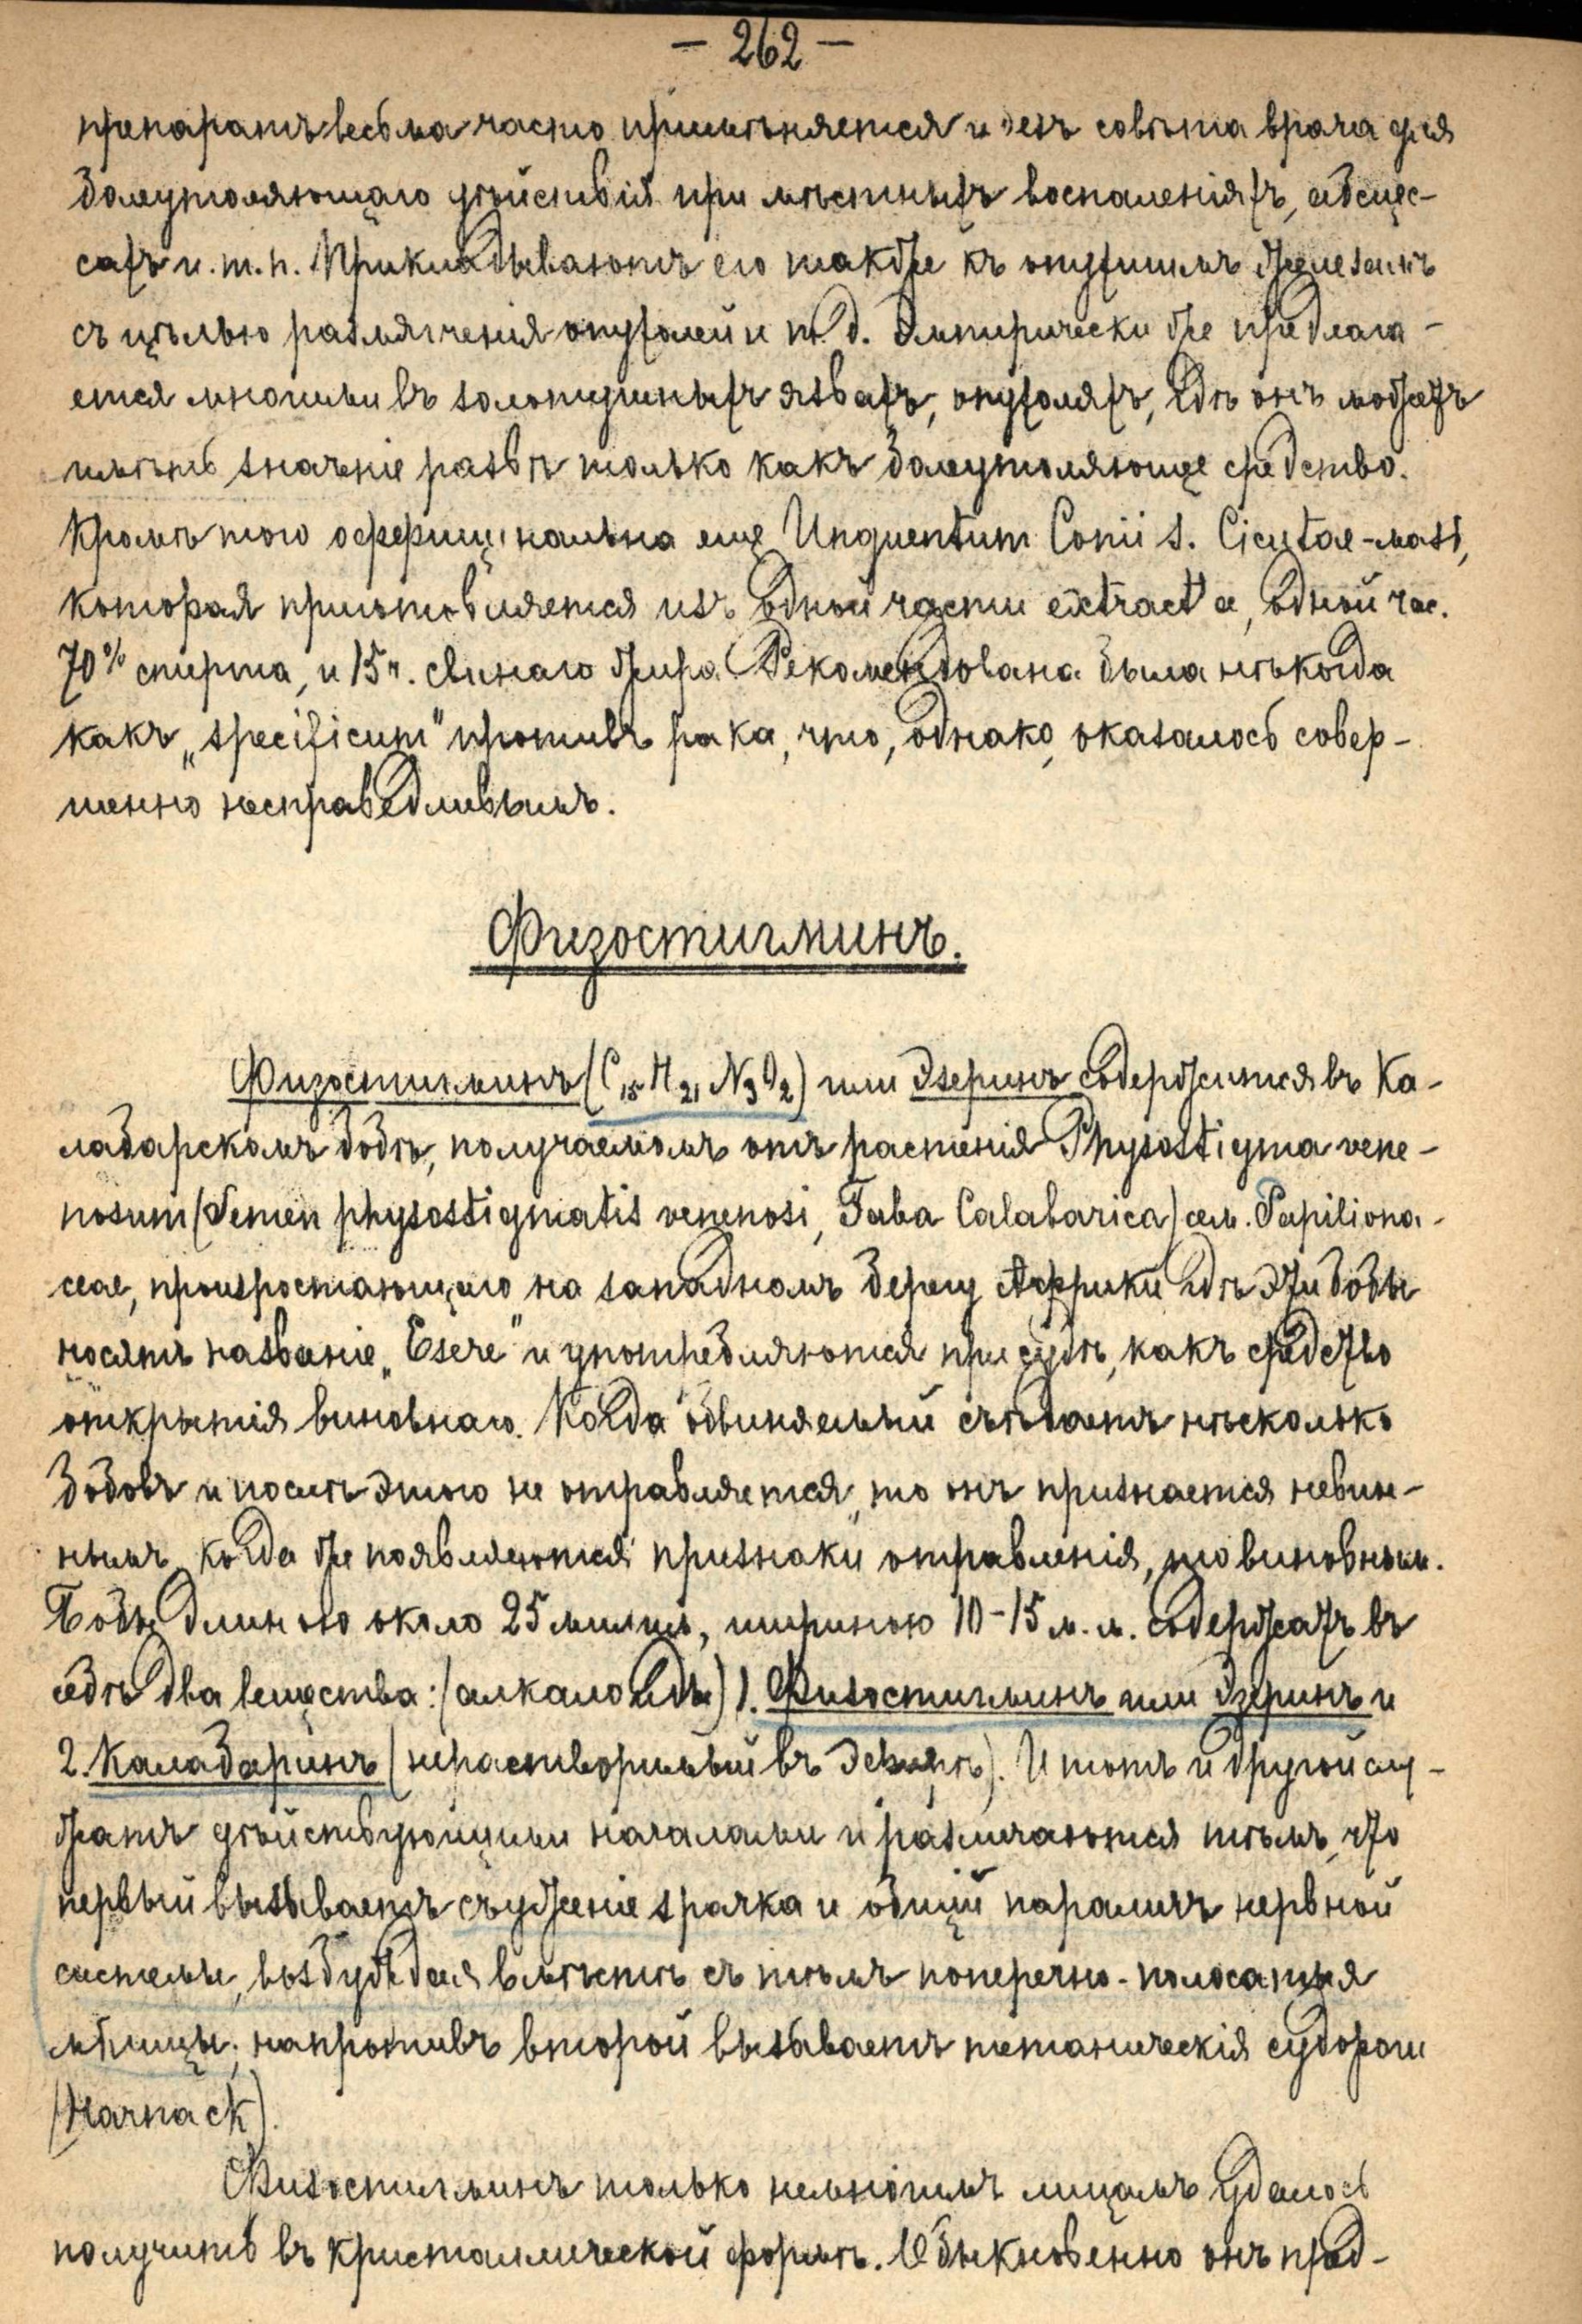 – 262 –
препаратъ весьма часто примѣняется и безъ совѣта врача для
болеутоляющаго дѣйствія при мѣстныхъ воспаленіяхъ, абсцес-
сахъ и. т. п. Прикладываютъ его также къ опухшимъ железамъ
съ цѣлью размягченія опухолей и т. д. Эмпирически же предлага-
ется многими въ золотушныхъ язвахъ, опухоляхъ, гдѣ онъ можетъ
имѣть значеніе развѣ только какъ болеутоляюще средство.
Кромѣ того оффиціинальна еще Unguentum Conii s. Cicutae-мазь,
которая приготовляется изъ одной части extract'a, одной час.
70% спирта, и 15 ч. свинаго жира. Рекомендована была нѣкогда
какъ „specificum" противъ рака, что, однако, оказалось совер-
шенно несправедливымъ.
Физостигминъ.
Физостигминъ (C15 H21 N3 O2) или Эзеринъ содержится въ Ка-
лабарскомъ бобѣ, получаемомъ отъ растенія Physostigma vene-
nosum (Semen physostigmatis venenosi, Faba Calabarica) сем. Papiliona-
ceae, произростающаго на западномъ берегу Африки гдѣ эти бобы
носятъ названіе „Esere" и употребляются при судѣ, какъ средство
открытія виновнаго. Когда обвиняемый съѣдаетъ нѣсколько
бобовъ и послѣ этого не отравляется, то онъ признается невин-
нымъ, когда же появляются признаки отравленія, то виновным.
Бобы длиною около 25 милим, шириною 10-15 м. м. содержатъ въ
себѣ два вещества: (алкалоиды) 1. Физостигминъ или Эзеринъ и
2. Калабаринъ (нерастворимый въ Эфирѣ). И тотъ и другой слу-
жатъ дѣйствующими началами и различаются тѣмъ, что
первый вызываетъ съуженіе зрачка и общій параличъ нервной
системы, возбуждая вмѣстѣ съ тѣмъ поперечно-полосатыя
мышцы; напротивъ второй вызываетъ тетаническія судороги
(Harnack).
Физостигминъ только немногимъ лицамъ удалось
получить въ кристаллической формѣ. Обыкновенно онъ пред-